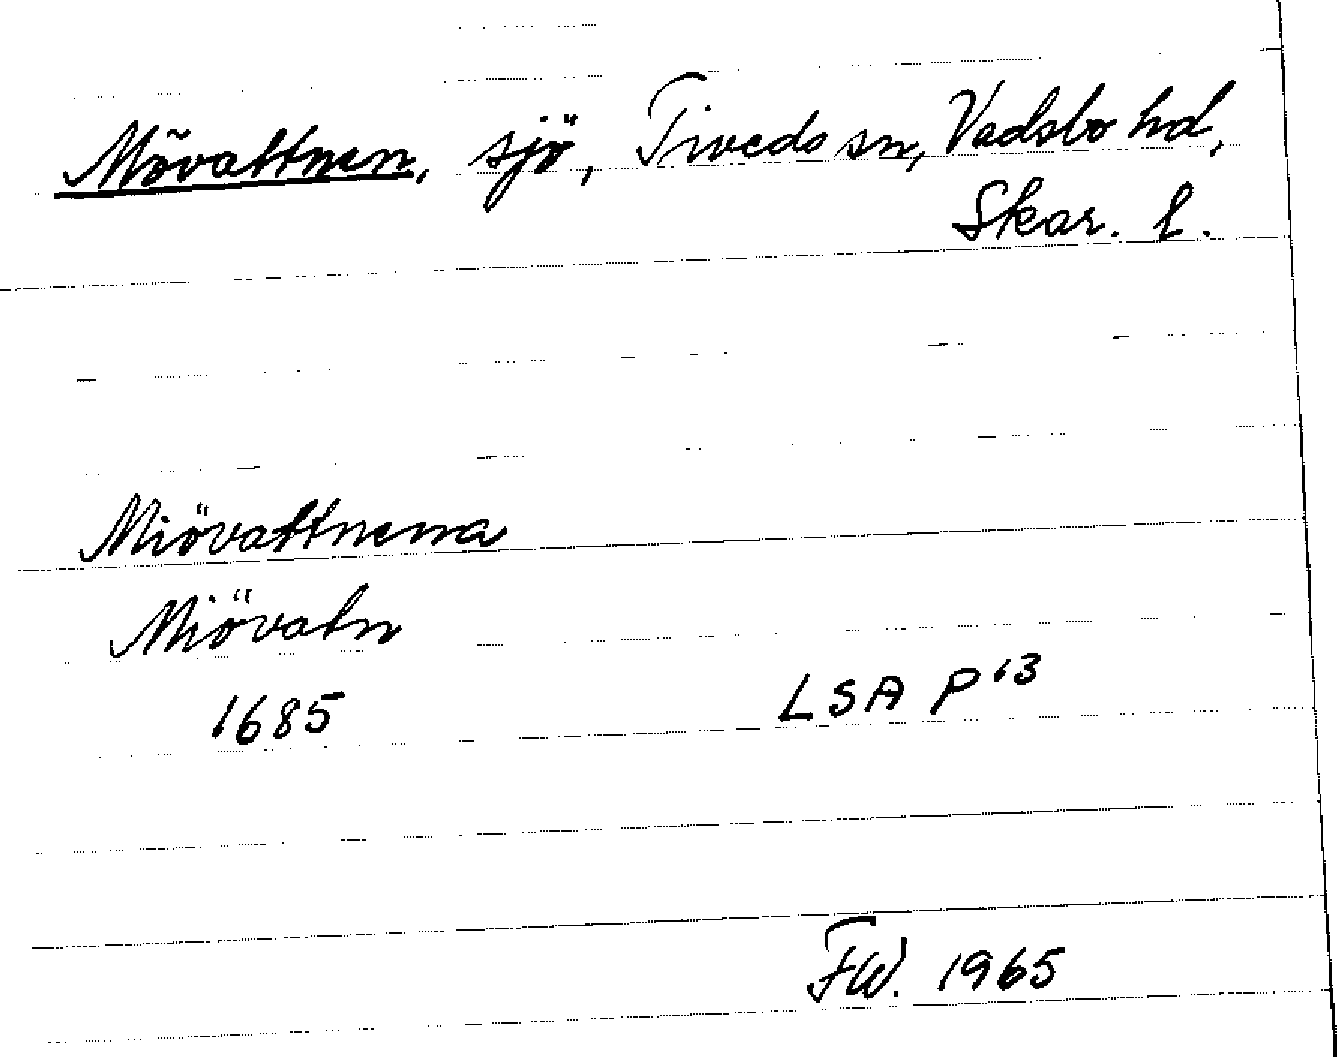 Mövattnen, sjö, Tiveds sn, Vadsbo hd,
Skar. l.
Miövattnerna
Miövatn
1685 LSA P 13
FW. 1965